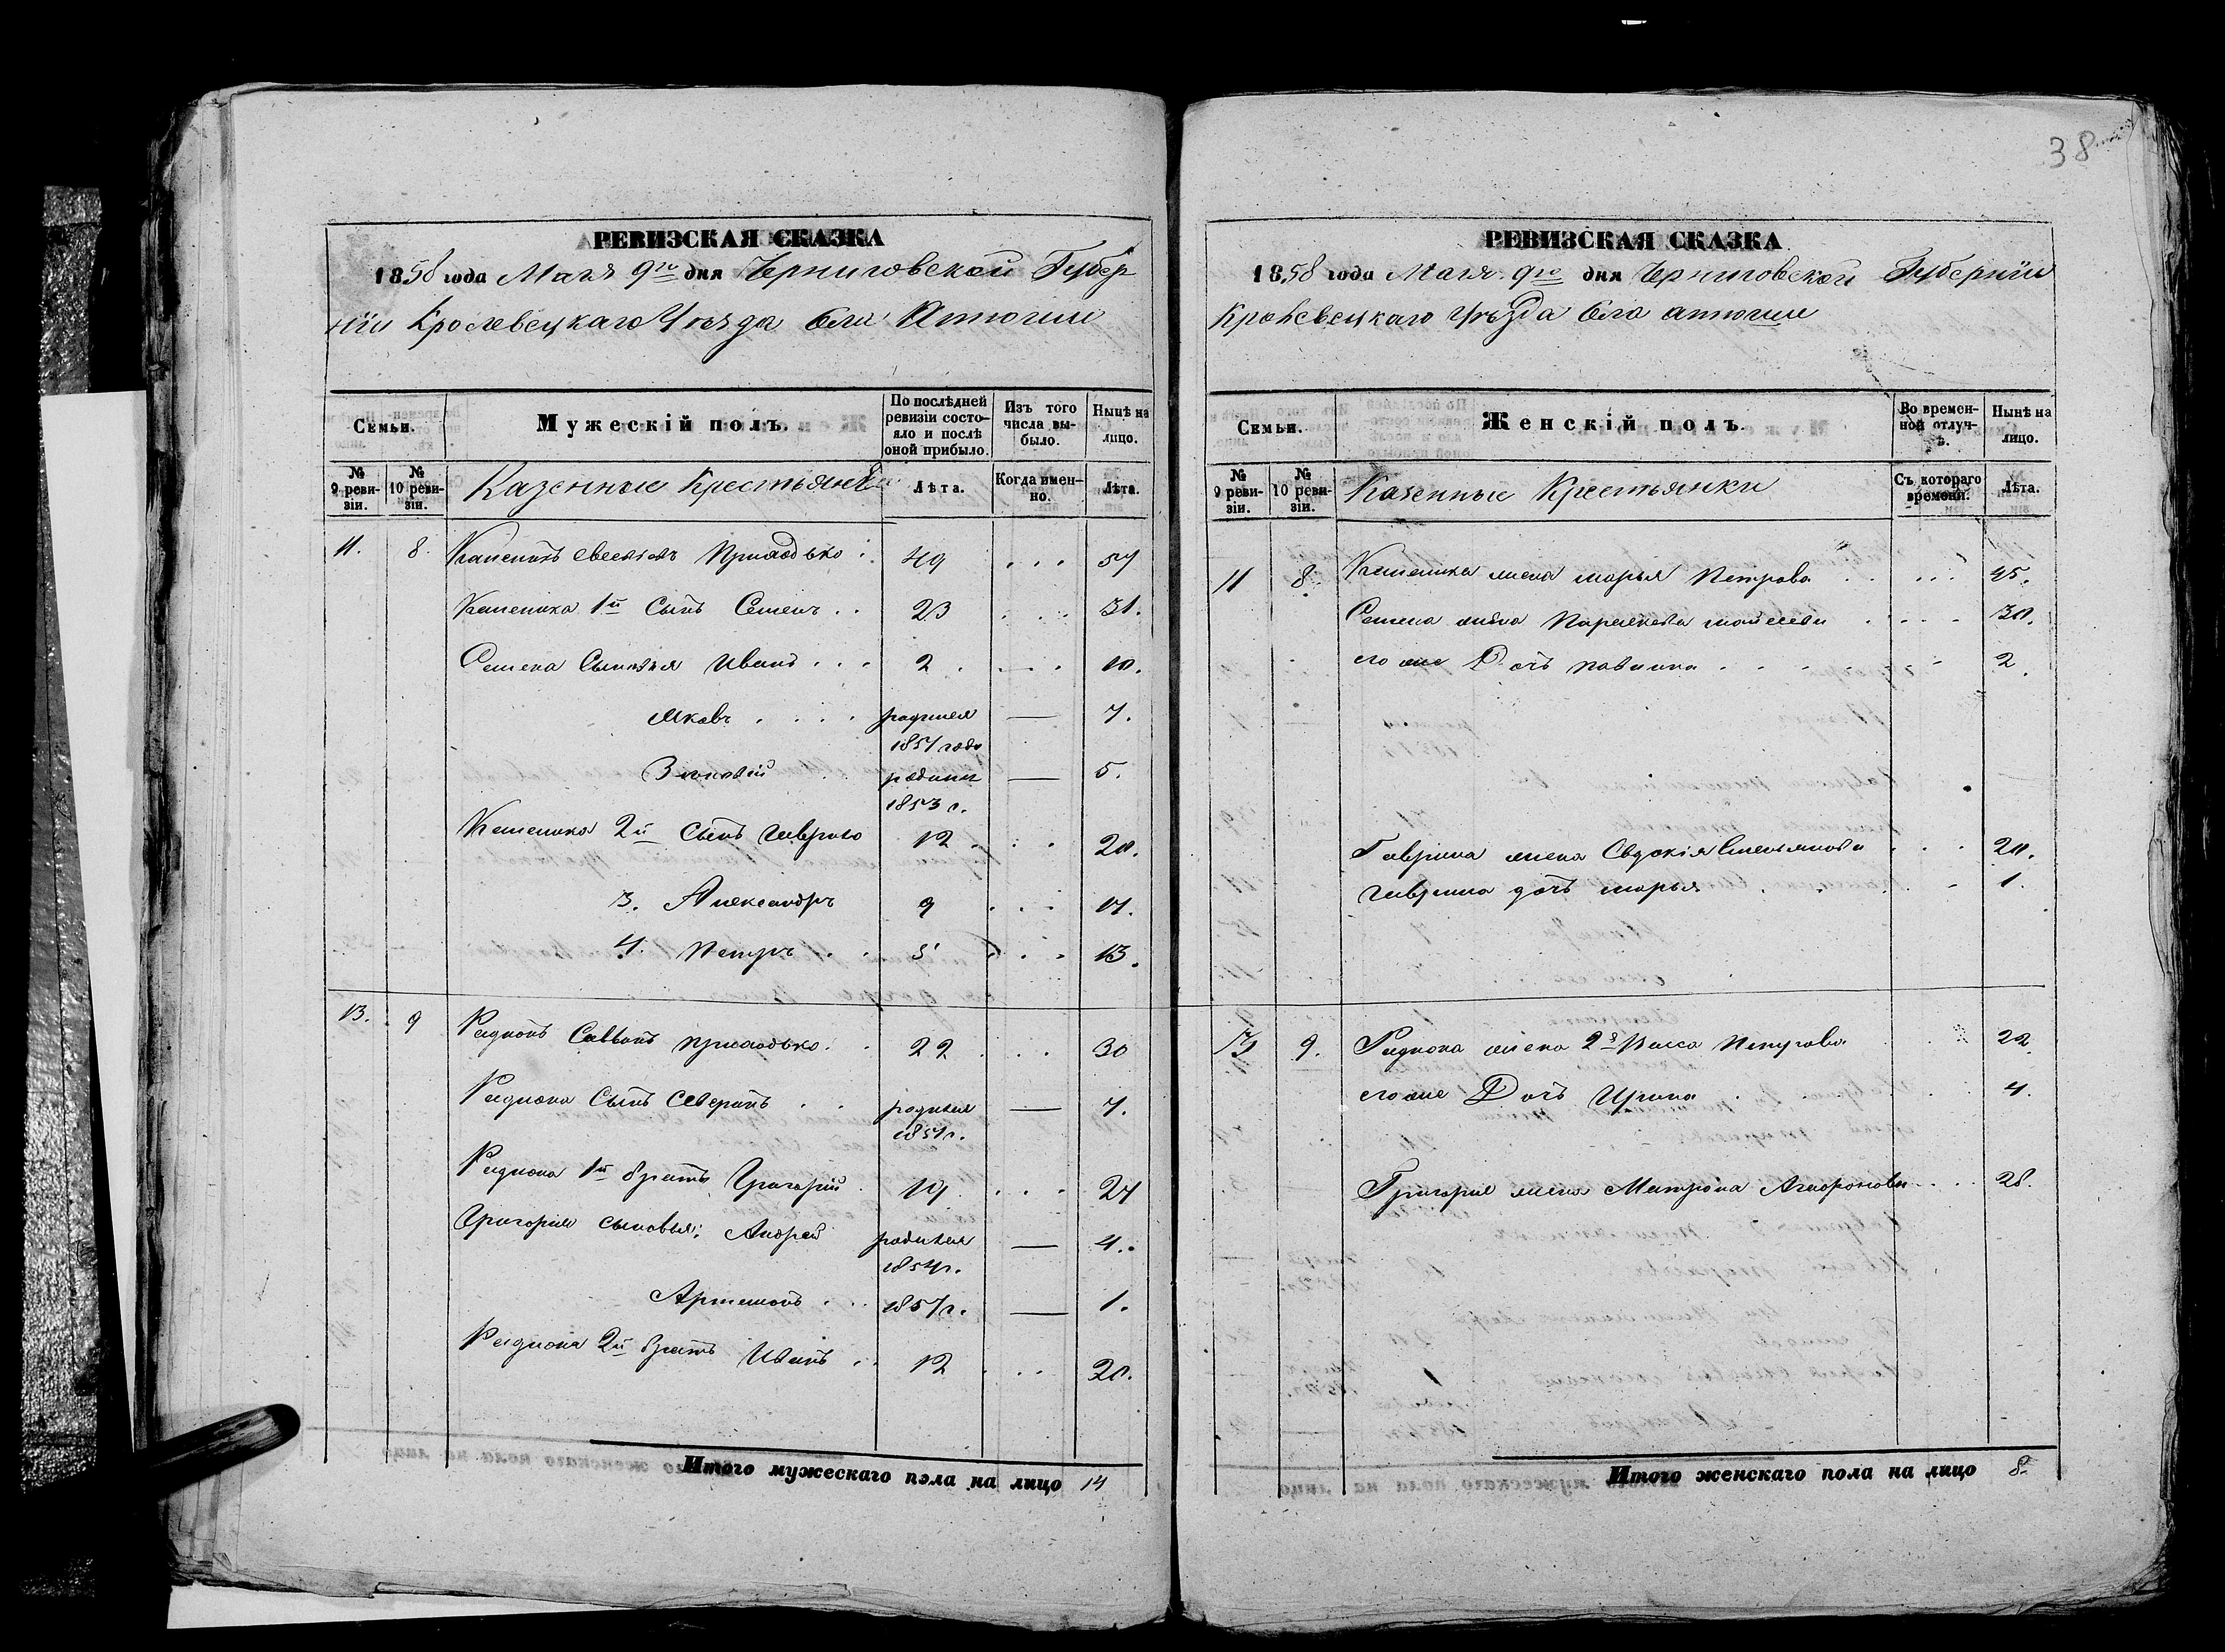 РЕВИЗСКАЯ СКАЗКА
1858 года Мая 9го дня Черниговской Губер
ніи Кролевецкаго Уѣзда Села Атюши
Семьи.
Мужескій полъ.
По послѣдней ревизіи состояло и послѣ оной прибыло.
Изъ того числа выбыло.
Нынѣ на лицо.
№ 9 ревизіи.
№ 10 ревизіи.
Казенные Крестьяне
Лѣта.
Когда именно.
Лѣта.
11. 8. Приходько 49 . . . 57
1й Сынъ Семенъ . . 23 . . . 31.
Семена Сыновья Иванъ . . . 2 . . . . 10.
Яковъ . . . . родился — 7.
1851 года
Зиновій родился — 5.
1853 г.
2й Сынъ Гаврило 12 . . . 20.
3. Александръ 9 . . . 17.
4. Петръ . . 5 . . . 13.
13. 9 Радіонъ Приходько . . 22 . . . 30
Радіона Сынъ Северинъ . . родился — 7.
1851 г.
Радіона 1й братъ Григорій . 19 . . . 27
Григорія сыновья: Андрей родился — 4.
1854 г.
Артемонъ . . . 1857 г. — 1.
Радіона 2й братъ Иванъ . . 12 . . . 20.
Итого мужескаго пола на лицо 14
38
РЕВИЗСКАЯ СКАЗКА
1858 года Мая 9го дня Черниговской Губерніи
Кролевецкаго Уѣзда Села Атюши
Семьи.
Женскій полъ.
Во временной отлучкѣ.
Нынѣ на лицо.
№ 9 ревизіи.
№ 10 ревизіи.
Казенные Крестьянки
Съ котораго времени.
Лѣта.
11 8. жена Марья Петрова . . . . . 45.
Семена жена Параскева . . . . 30.
его же Дочь . . . . . 2.
Гаврила жена Евдокія . . . 20.
Гаврила дочь Марья . . . 1.
13 9. Радіона жена 2я Васса Петрова . . 22.
его же Дочь Ирина . . . 4.
Григорія жена Матрона . . . 28.
Итого женскаго пола на лицо 8.